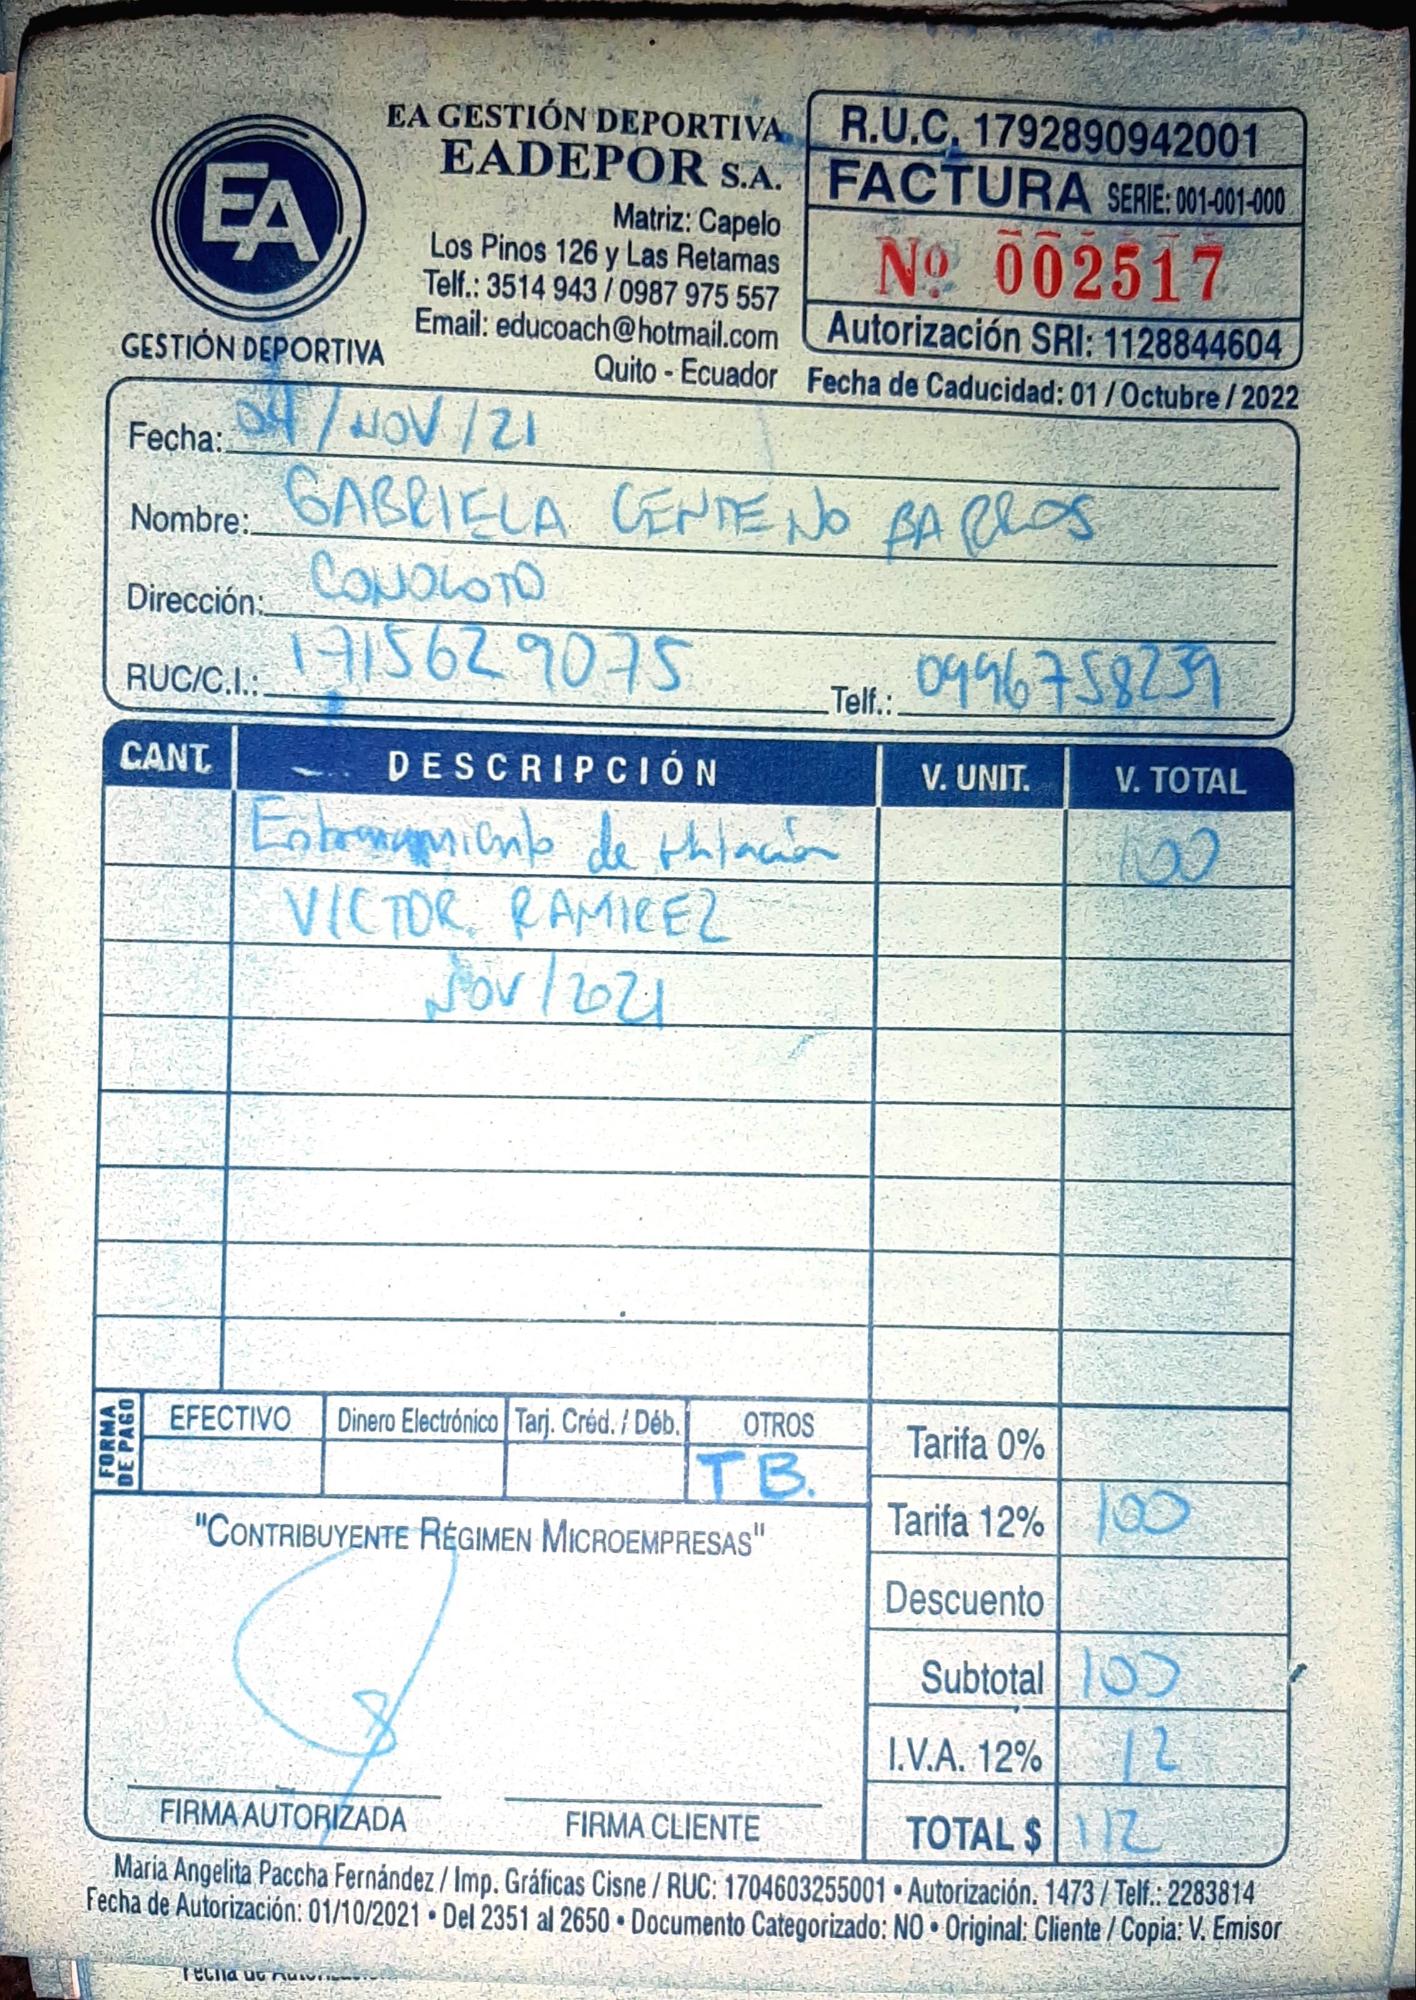 EA
GESTIÓN DEPORTIVA
EA GESTIÓN DEPORTIVA
EADEPOR S.A.
Matriz: Capelo
Los Pinos 126 y Las Retamas
Telf.: 3514 943 / 0987 975 557
Email: educoach@hotmail.com
Quito - Ecuador
R.U.C. 1792890942001
FACTURA SERIE: 001-001-000
Nº 002517
Autorización SRI: 1128844604
Fecha de Caducidad: 01 / Octubre / 2022
Fecha: 04/NOV/21
Nombre: GABRIELA CENTENO BARROS
Dirección: CONOCOTO
RUC/C.I.: 1715629075 Telf.: 0996758239
CANT. DESCRIPCIÓN V. UNIT. V. TOTAL
de 100
VICTOR RAMIREZ
NOV/2021
FORMA DE PAGO
EFECTIVO Dinero Electrónico Tarj. Créd. / Déb. OTROS
T B.
Tarifa 0%
Tarifa 12% 100
Descuento
Subtotal 100
I.V.A. 12% 12
TOTAL $ 112
"CONTRIBUYENTE RÉGIMEN MICROEMPRESAS"
FIRMA AUTORIZADA FIRMA CLIENTE
María Angelita Paccha Fernández / Imp. Gráficas Cisne / RUC: 1704603255001 • Autorización. 1473 / Telf.: 2283814
Fecha de Autorización: 01/10/2021 • Del 2351 al 2650 • Documento Categorizado: NO • Original: Cliente / Copia: V. Emisor